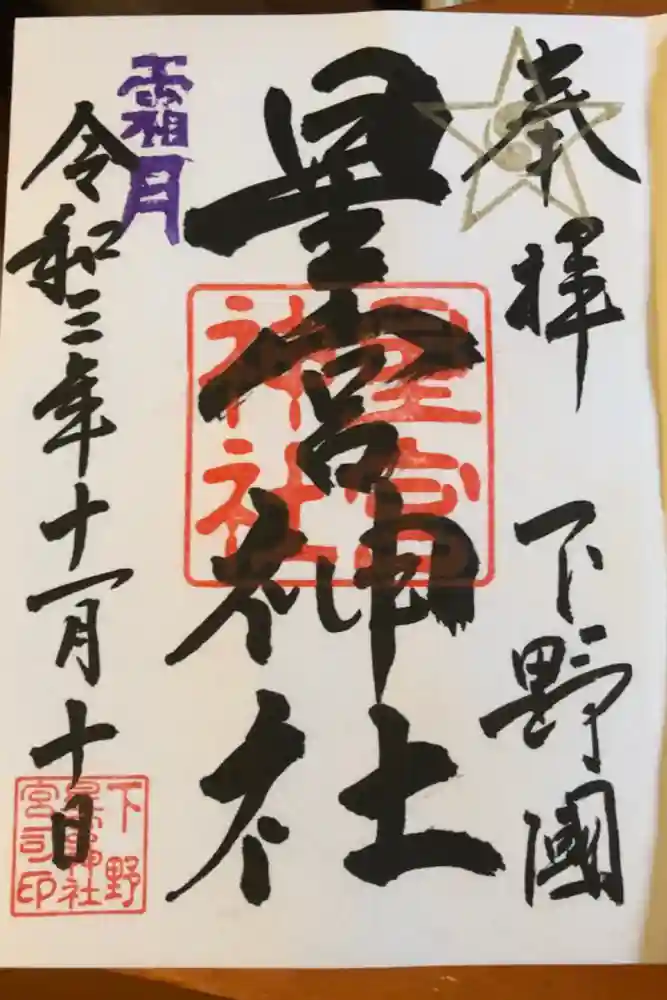 奉拝 下野國
星宮神社
星宮神社
霜月
令和三年十一月十日
下野星宮神社宮司印